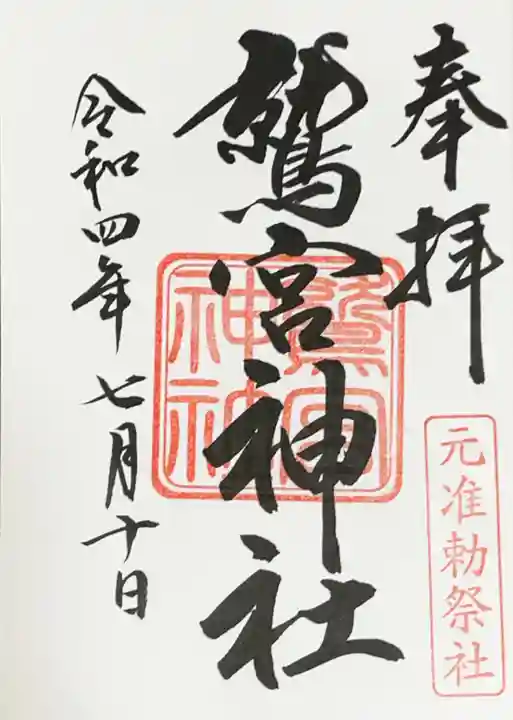 奉拝
元准勅祭社
鷲宮神社
鷲宮
神社
令和四年七月十日